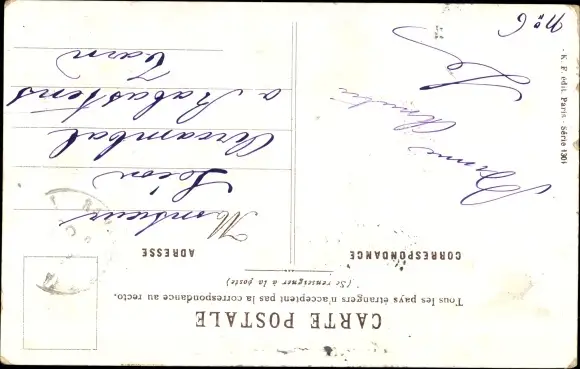 CARTE POSTALE
Tous les pays étrangers n'acceptent pas la correspondance au recto.
(Se renseigner à la poste)
CORRESPONDANCE
ADRESSE
Monsieur
Léon
Arcambal
a Rabastens
Tarn
Bonne
No 6
K. F. édit. Paris - Série 1301